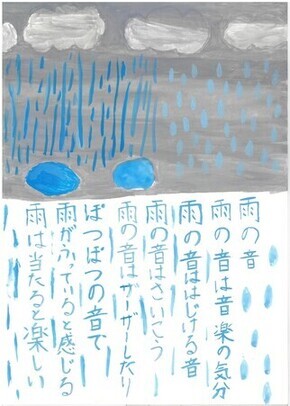 雨の音
雨の音は音楽の気分
雨の音ははじける音
雨の音はさいこう
雨の音はザーザーしたり
ぽつぽつの音で
雨がふっていると感じる
雨は当たると楽しい